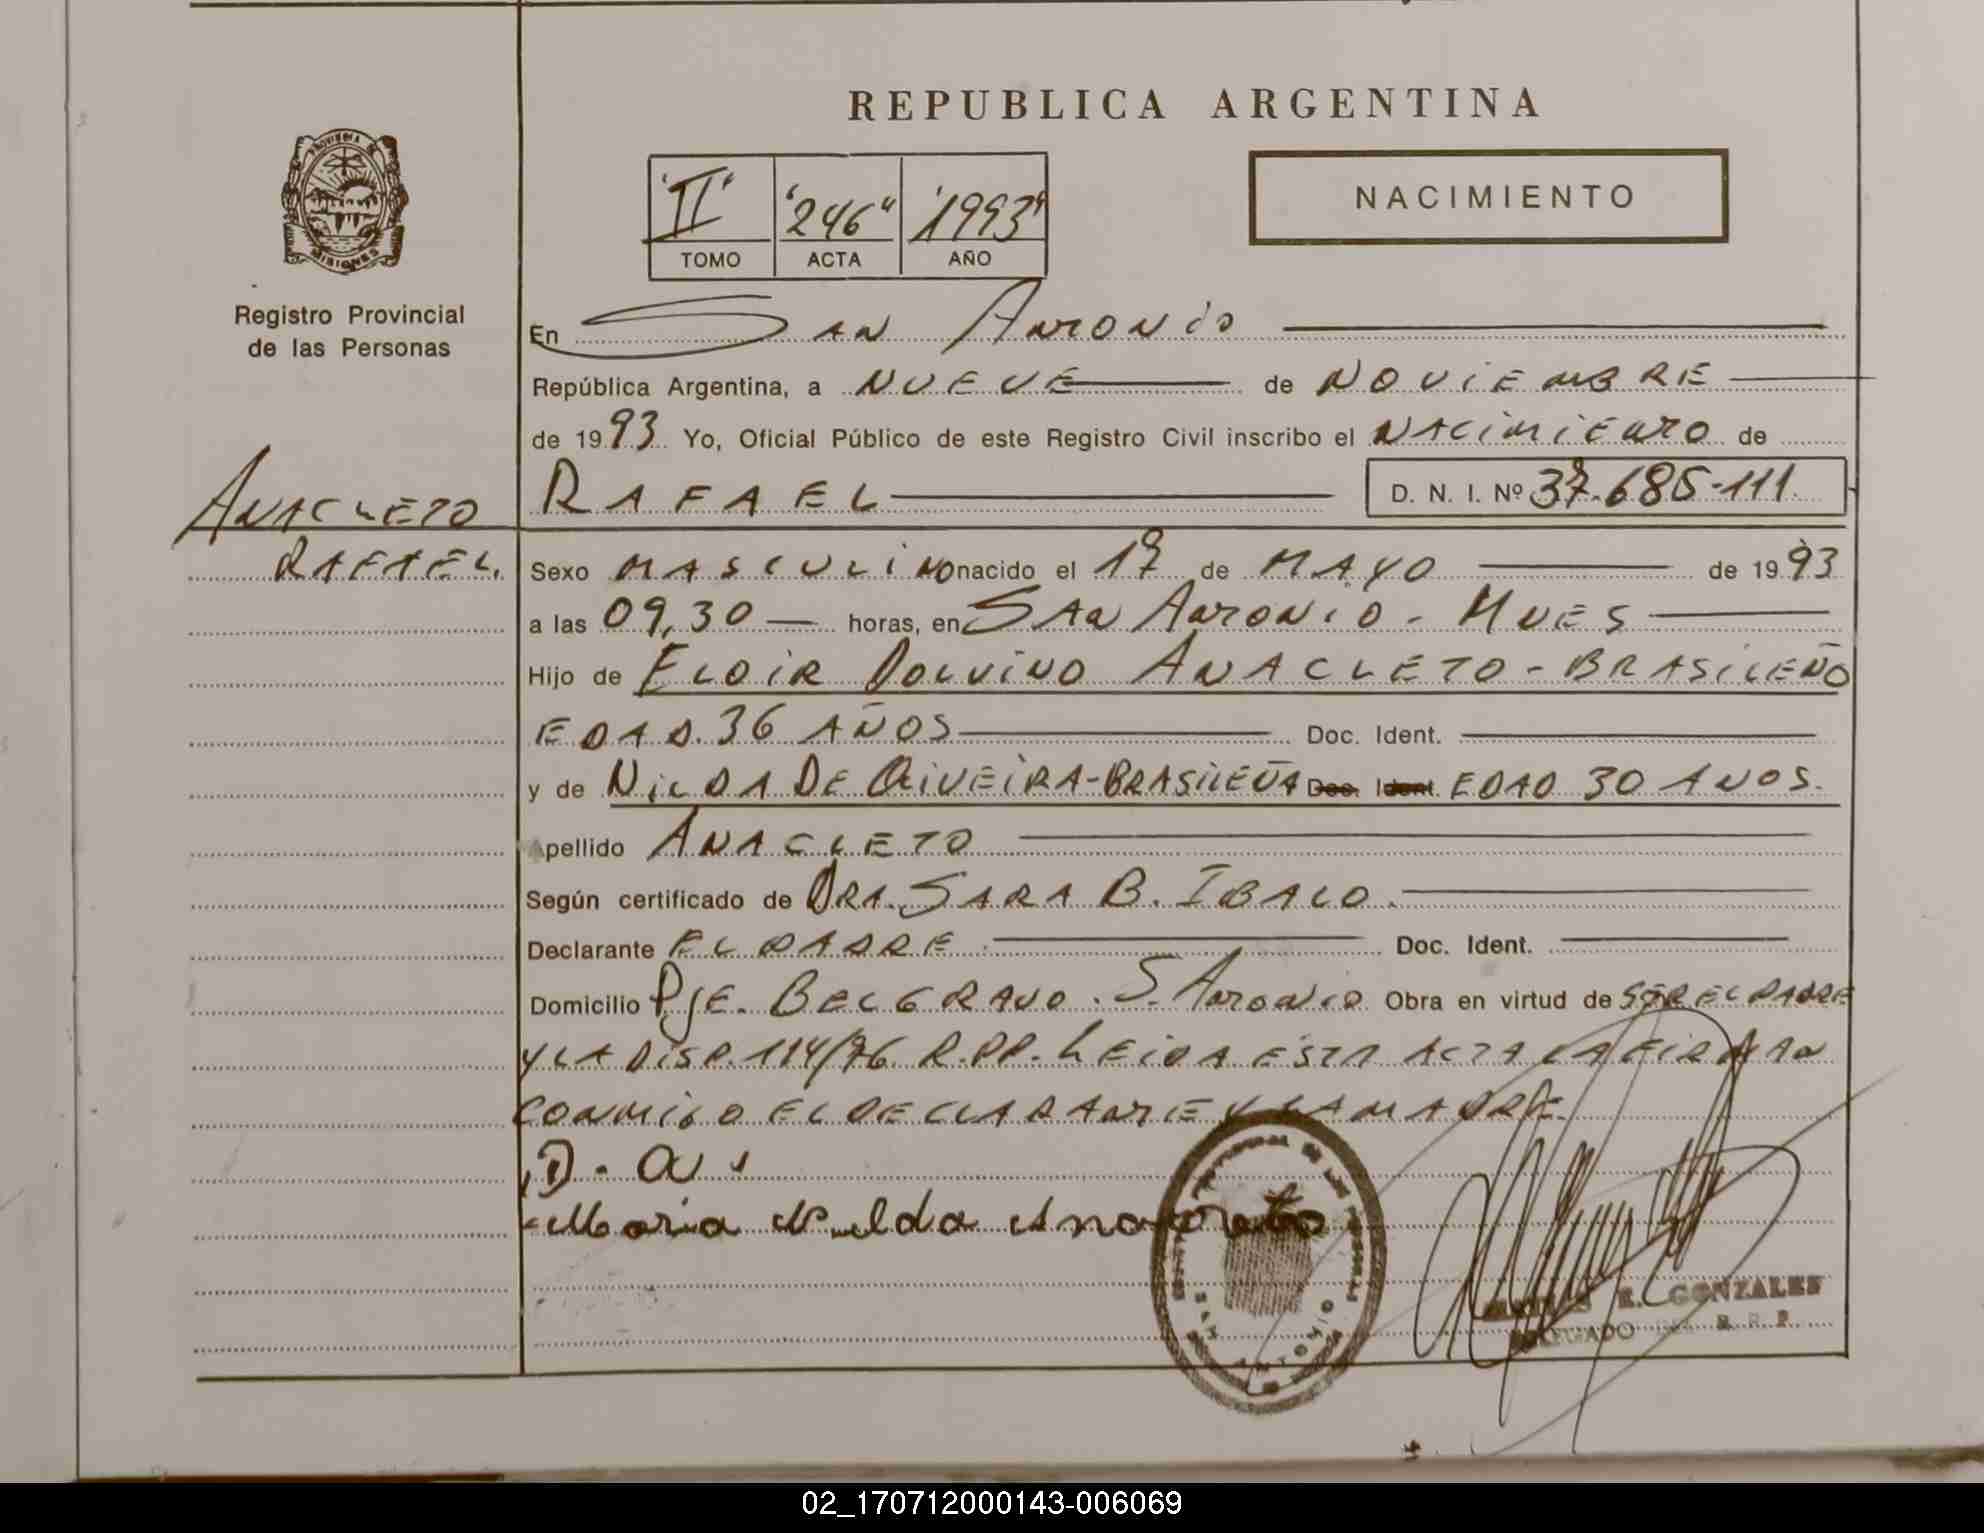 REPUBLICA ARGENTINA
"II" "246" "1993"
TOMO ACTA AÑO
NACIMIENTO
PROVINCIA DE
MISIONES
Registro Provincial
de las Personas
En SAN ANTONIO
República Argentina, a NUEVE de NOVIEMBRE
de 1993 Yo, Oficial Público de este Registro Civil inscribo el NACIMIENTO de
RAFAEL D. N. I. Nº 37.685-111.
ANACLETO
RAFAEL.
Sexo MASCULINO nacido el 17 de MAYO de 1993
a las 09,30 horas, en SAN ANTONIO - MNES
Hijo de ELOIR DOLVINO ANACLETO - BRASILEÑO
EDAD. 36 AÑOS Doc. Ident.
y de NILDA DE OLIVEIRA - BRASILEÑA Doc. Ident. EDAD 30 AÑOS.
Apellido ANACLETO
Según certificado de DRA. SARA B. IBALO.
Declarante EL PADRE. Doc. Ident.
Domicilio PJE. BELGRANO. S. ANTONIO Obra en virtud de SER EL PADRE
Y LA DISP. 114/76 R.P.P. LEIDA ESTA ACTA LA FIRMAN
CONMIGO EL DECLARANTE Y LA MADRE.
Maria Nilda
SAN ANTONIO
E. GONZALES
DELEGADO R. P.
02_170712000143-006069